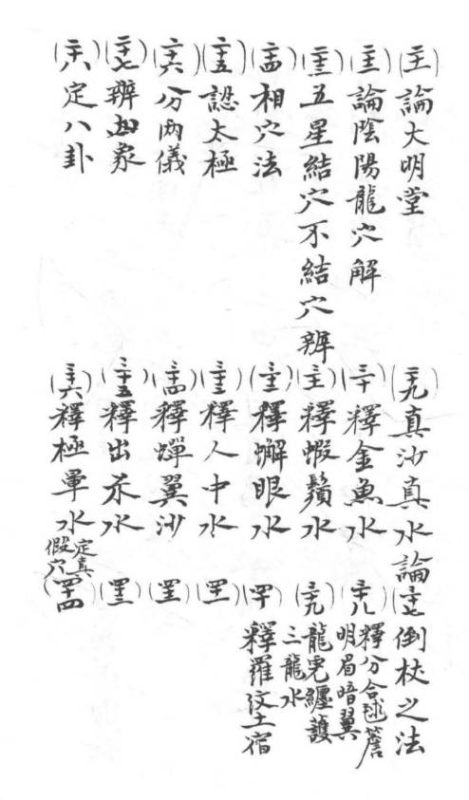 (二十一)論大明堂
(二十二)論陰陽龍穴解
(二十三)五星結穴不結穴辨
(二十四)相穴法
(二十五)認太極
(二十六)分兩儀
(二十七)辨四象
(二十八)定八卦
(二十九)真沙真水論
(三十)釋金魚水
(三十一)釋蝦鬚水
(三十二)釋蠏眼水
(三十三)釋人中水
(三十四)釋蟬翼沙
(三十五)釋出杀水
(三十六)釋極暈水定真假穴
(三十七)倒杖之法
(三十八)釋分合毬簷明眉暗翼
(三十九)龍虎纏護三龍水
(四十)釋羅紋土宿
(四十一)
(四十二)
(四十三)
(四十四)